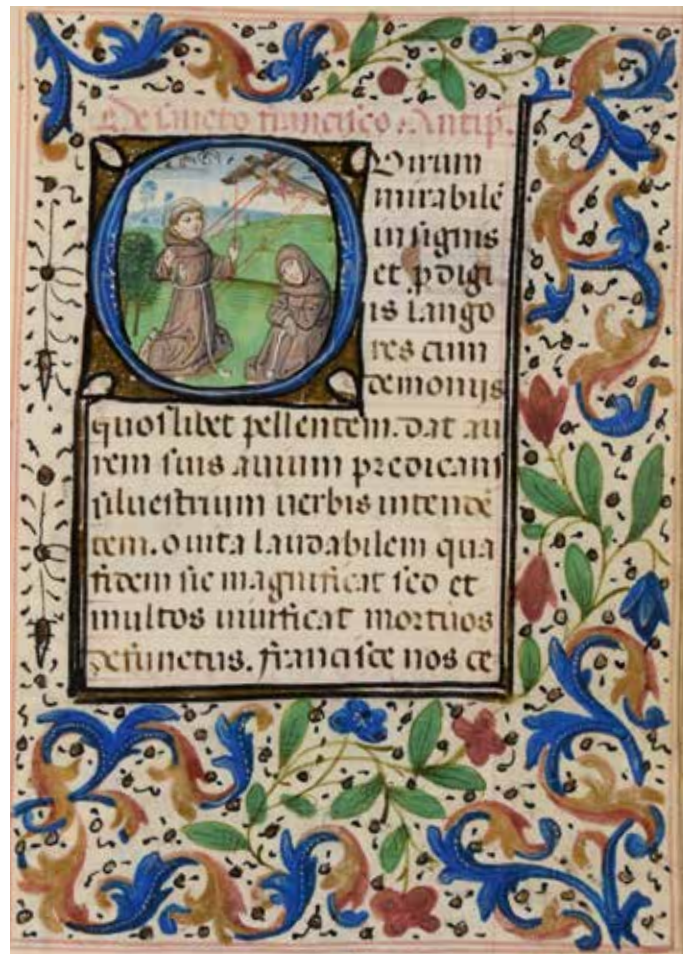 De sancto francisco. Antiph.
O Virum
mirabilē
in signis
et ꝓdigi
is lango
res cum
demoniis
quoslibet pellentem. dat au
rem suis auium predicans
siluestrium uerbis intendē
tem. o uita laudabilem qua
fidem sic magnificat sed et
multos uiuificat mortuos
defunctus. francisce nos ce